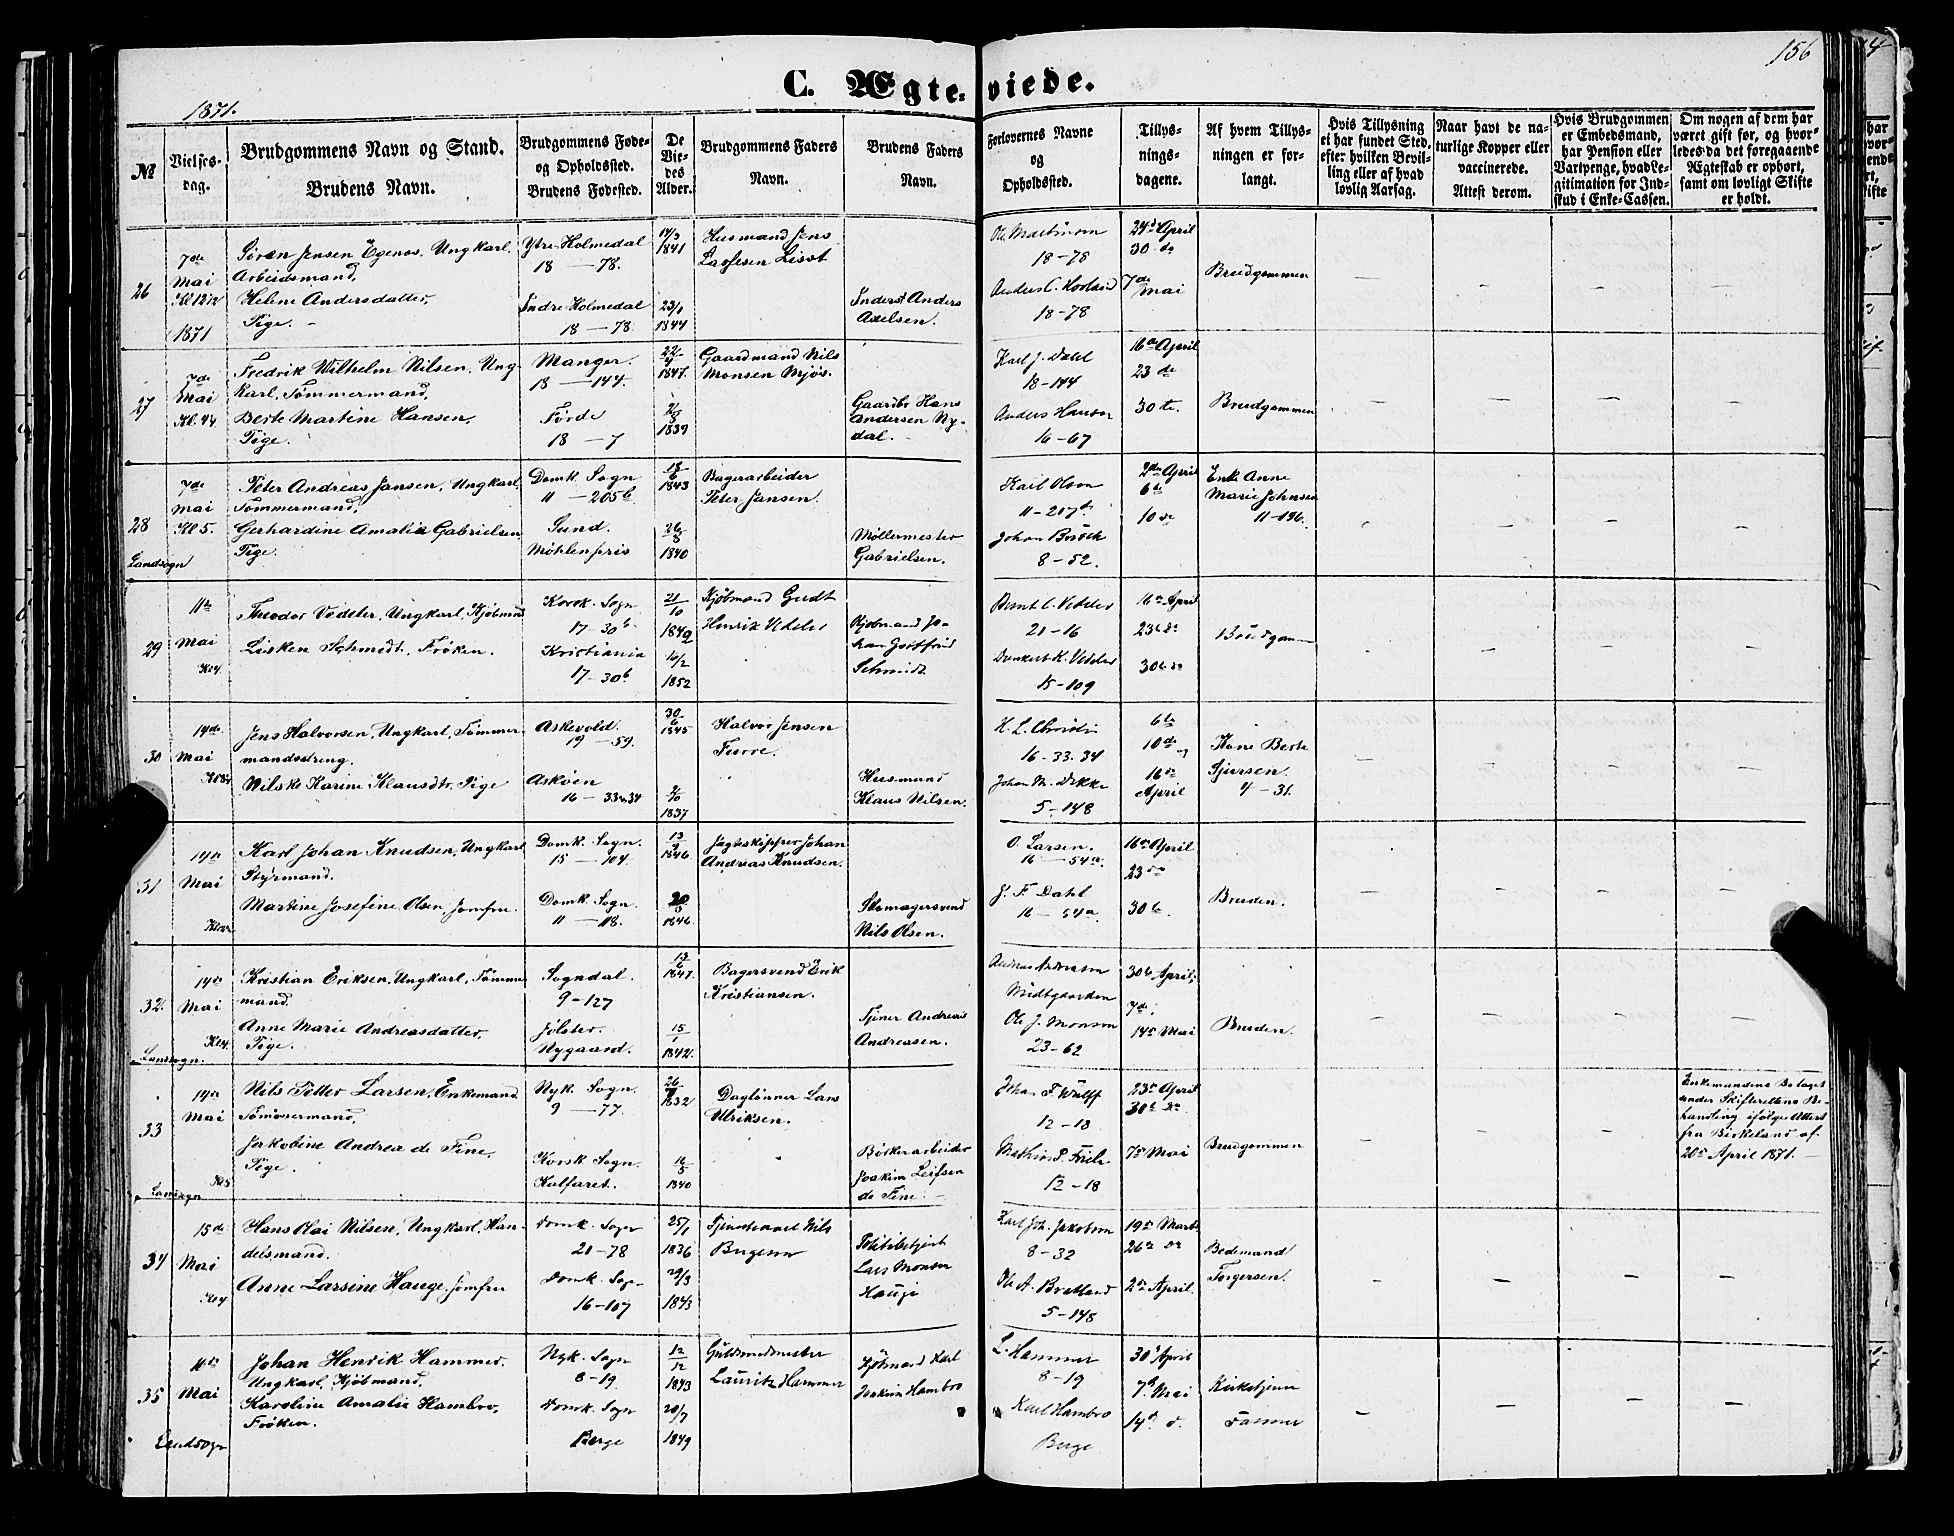 156
C. Ægteviede.
1871.
№
Vielses-
dag.
Brudgommens Navn og Stand.
Brudens Navn.
Brudgommens Føde-
og Opholdssted.
Brudens Fødested.
De
Vie-
des
Alder.
Brudgommens Faders
Navn.
Brudens Faders
Navn.
Forlovernes Navne
og
Opholdssted.
Tillys-
nings-
dagene.
Af hvem Tillys-
ningen er for-
langt.
Hvis Tillysning
ei har fundet Sted,
efter hvilken Bevil-
ling eller af hvad
lovlig Aarsag.
Naar havt de na-
turlige Kopper eller
vaccinerede.
Attest derom.
Hvis Brudgommen
er Embedsmand,
har Pension eller
Vartpenge, hvad Le-
gitimation for Ind-
skud i Enke-Cassen.
Om nogen af dem har
været gift før, og hvor-
ledes da det foregaaende
Ægteskab er ophørt,
samt om lovligt Skifte
er holdt.
26
7de
Mai
1871
Søren Jensen Egenes, Ungkarl,
Arbeidsmand,
Helene Andersdatter,
Pige.
Ytre Holmedal
18 — 78.
Indre Holmedal
18 — 78.
14/3
1841
23/1
1844
Husmand Jens
Lassesen
Inderst Anders
Axelsen.
Ole Martinsen
18-78
Anders C.
18-78
24de April
30 de
7de Mai
Brudgommen
27
7de
Mai
Kl. 4¼
Fredrik Wilhelm Nilsen, Ung-
karl, Tømmermand,
Berte Martine Hansen,
Pige.
Manger.
18 — 144.
Førde
18 — 7
22/4
1847.
2/8
1839
Gaardmand Nils
Monsen Mjøs.
Gaardbr. Hans
Andersen Ny-
dal.
Karl J. Dahl
18-144
Anders Hansen
16-67
16de April
23 de
30 te.
Brudgommen
28
Landsogn
7de
Mai
Kl 5.
Peter Andreas Jansen, Ungkarl,
Tømmermand,
Gerhardine Amalia Gabrielsen
Pige.
Domk. Sogn
11 — 205 b
Sund.
Møhlenpris
18/6
1843
26/8
1840
Bagerarbeider
Peter Jansen.
Møllermester
Gabrielsen.
Karl Olsen
11-207 d
Johan
8-52.
2den April
6te
10 de
Enke Anne
Marie Johnsen
11-196.
29
11te
Mai
Kl 4.
Theodor Vedeler, Ungkarl, Kjøbmnd
Lisken Schmidt, Frøken.
Korsk. Sogn
17-30 b
Kristiania
17-30 b
21/10
1842
16/2
1852
Kjøbmand Gerdt
Henrik Vedeler
Kjøbmand Jo-
han Gottfried
Schmidt
Bernt C. Vedeler
21-16
Dankert K. Vedeler
15-109
16de April
23de do
30te do
Brudgommen
30
14de
Mai
Jens Halvorsen, Ungkarl, Tømmer-
mandsdreng.
Nilske Karine Klausdtr, Pige
Askevold.
19 — 59.
Askøen
16 — 33 & 34
30/6
1845
2/10
1837
Halvor Jensen
Furre.
Husmand
Klaus Nilsen.
H. L. Christie
16-33.34
Johan M. Dekke
5-148
6te
10de og
16de
April
Kone Berte
Sjursen.
4-31.
31
14de
Mai
Karl Johan Knudsen, Ungkarl
Styrmand,
Martine Josefine Olsen, Jomfru.
Domk. Sogn.
15 — 104.
Domk. Sogn.
11 — 118.
13/9
1846
1846.
Jagtskipper Johan
Andreas Knudsen.
Skomagersvend
Nils Olsen.
O. Larsen.
16 — 54 a.
J. F. Dahl
16 — 54 a.
16de April
23de
30 te.
Bruden.
32.
Landsogn.
14de
Mai
Kl 4.
Kristian Eriksen, Ungkarl, Tømmer-
mand.
Anne Marie Andreasdatter,
Pige.
Sogndal.
9-127
Jølster.
Nygaard.
18/6
1847.
15/1
1842.
Bagersvend Erik
Kristiansen.
Tjener Andreas
Andreasen.
Andreas Andersen
Midtgaarden
Ole J. Monsen
23-62
30te April,
7de.
14de Mai
Bruden.
33
Landsogn
14de
Mai
Kl 5
Nils Petter Larsen, Enkemand
Tømmermand,
Jakobine Andrea de Fine,
Pige.
Nyk. Sogn.
9 — 77.
Korsk Sogn.
Kalfaret.
26/9
1832
16/5
1840
Daglønner Lars
Ulriksen.
Bødkerarbeider
Joakim Leifsen
de Fine.
Johan F. Wulff
12-18
Mathias P. Friele
12-18
23de April
30te do.
7de Mai
Brudgommen
Enkemandens Bo taget
under Skifterettens Be-
handling ifølge Attest
fra Birkeland af
20de April 1871.
34
15de
Mai
Kl 4
Hans Mai Nilsen, Ungkarl, Han-
delsmand.
Anne Larsine Hauge, Jomfru
Domk. Sogn
21-78
Domk. Sogn
16-107
25/1
1836
29/3
1843
Tjenestekarl Nils
Brigesen
Politibetjent
Lars Monsen
Hauge
Karl Joh. Jakobsen
8-32
Ole A. Bratland
5-148
19de Marts
26de do
2den April.
Bedemand
Torgersen.
35
Landsogn
16de
Mai
Johan Henrik Hammer,
Ungkarl, Kjøbmand,
Karoline Amalie Hambro,
Frøken.
Nyk. Sogn
8-19
Domk. Sogn
Berge
12/12
1843
20/7
1849
Guldsmedmester
Lauritz Hammer
Kjøbmand Karl
Joakim Hambro
L. Hammer
8-19
Karl Hambro
Berge
30te April
7de Mai
14de d.
Kirketjener
Fasmer